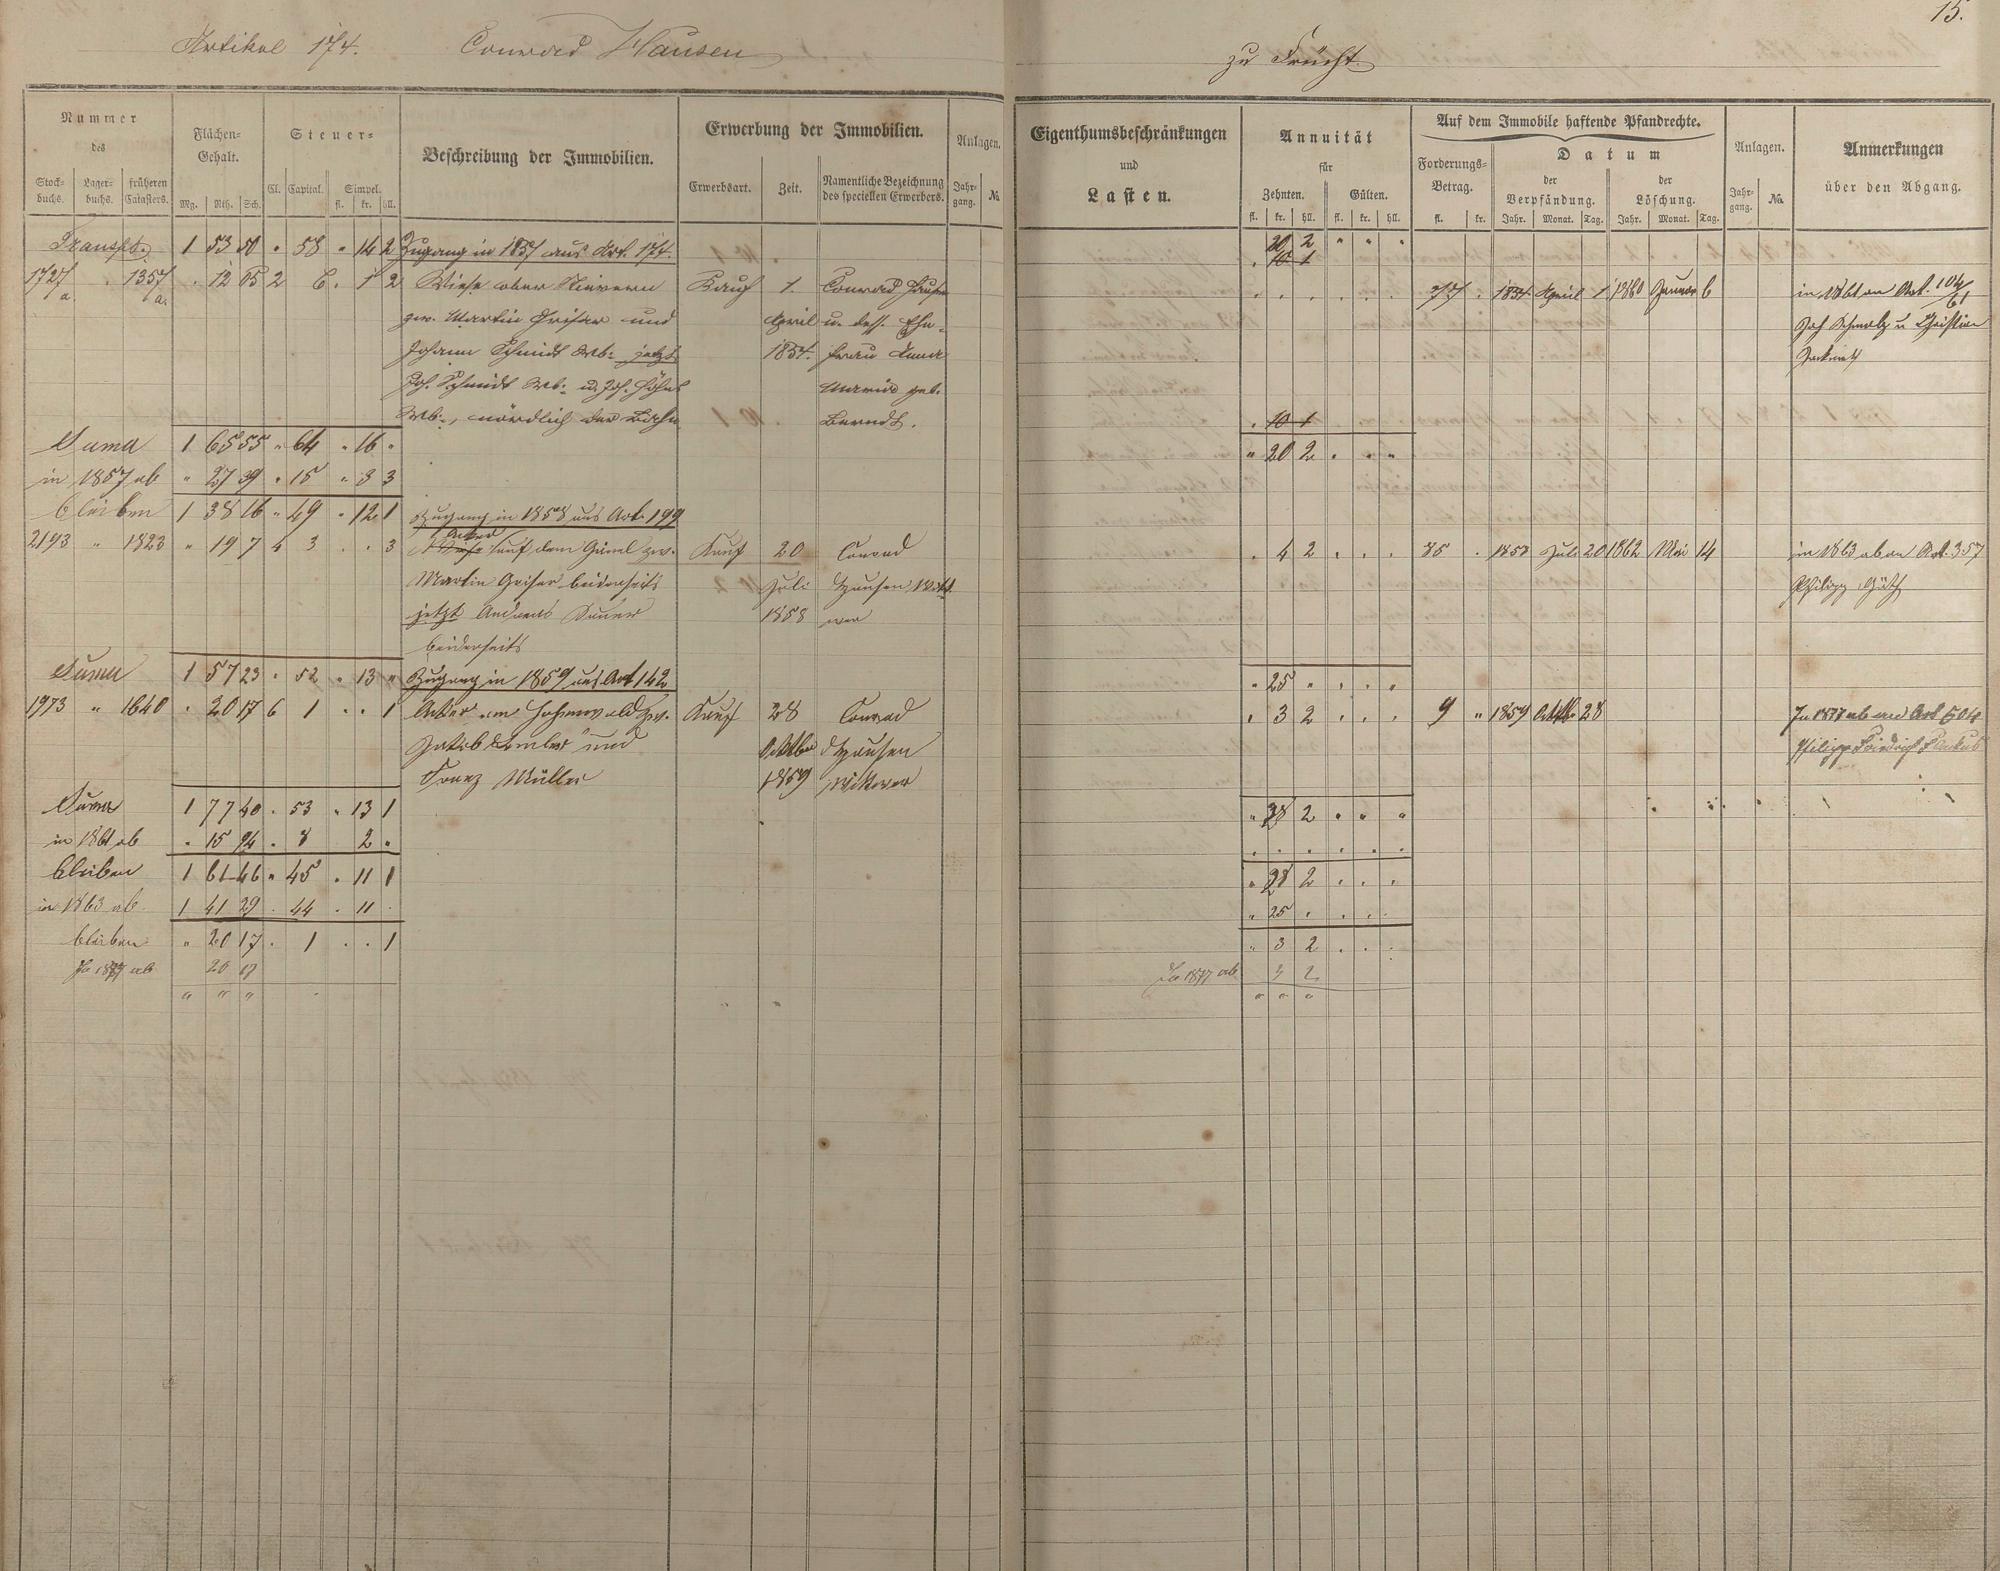 15.
Artikel 174. Conrad Hausen zu Frücht
Nummer des
Stock-buchs. Lager-buchs. früheren Catasters.
Flächen-Gehalt.
Mg. Rth. Sch.
Steuer-
Cl. Capital. Simpel. fl. kr. hll.
Beschreibung der Immobilien.
Erwerbung der Immobilien.
Erwerbsart. Zeit. Namentliche Bezeichnung des speciellen Erwerbers.
Anlagen.
Jahr-gang. No.
Eigenthumsbeschränkungen und Lasten.
Annuität für
Zehnten. fl. kr. hll. Gülten. fl. kr. hll.
Auf dem Immobile haftende Pfandrechte.
Forderungs-Betrag. fl. kr.
Datum
der Verpfändung. Jahr. Monat. Tag.
der Löschung. Jahr. Monat. Tag.
Anlagen.
Jahr-gang. No.
Anmerkungen über den Abgang.
Transpt. 1 53 50 " 58 " 14 2 Zugang in 1857 aus Art. 174. 20 2 " " "
10 1
1727/a. " 1357/a. " 12 05 2 6 " 1 2 Wiese ober Nievern Kauf 1. Conrad Hausen 77 " 1857 April 1 1860 Januar 6 in 1861 an Art. 104/61
zw. Martin Griser und April u. dess. Ehe-
Johann Schmidt Wb. jetzt 1857. frau Anna
Joh. Schmidt Wb. u. Joh. Maria geb.
Wb., nördlich der Lahn Berndt. 10 1
Suma 1 65 55 " 64 " 16 " " 20 2 " " "
in 1857 ab " 27 39 " 15 " 3 3
bleiben 1 38 16 " 49 " 12 1 Zugang in 1858 aus Art. 199
Acker
2193 " 1823 " 19 7 4 3 " " 3 Wiese auf dem zw. Kauf 20 Conrad " 4 2 " " " 35 " 1858 Juli 20 1862 Mai 14 in 1863 ab an Art. 357
Martin Griser beiderseits Juli Hausen Witt- Philipp
jetzt Andreas 1858 wer
beiderseits
Suma 1 57 23 " 52 " 13 " Zugang in 1859 aus Art 142 " 25 " " " "
1973 " 1640 " 20 17 6 1 " " 1 Acker am zw. Kauf 28 Conrad " 3 2 " " " 9 " 1859 Octbr 28 In 1877 ab an Art 504
Jakob und October Hausen Philipp Friedrich
Franz Müller 1859 Wittwer
Suma 1 77 40 " 53 " 13 1 " 28 2 " " "
in 1861 ab " 15 94 " 8 2 " " " " " " "
bleiben 1 61 46 " 45 " 11 1 " 28 2 " " "
in 1863 ab 1 41 29 " 44 " 11 " " 25 " " " "
bleiben " 20 17 " 1 " " 1 " 3 2 " " "
In 1877 ab 20 17 In 1877 ab 3 2
" " " " " " "